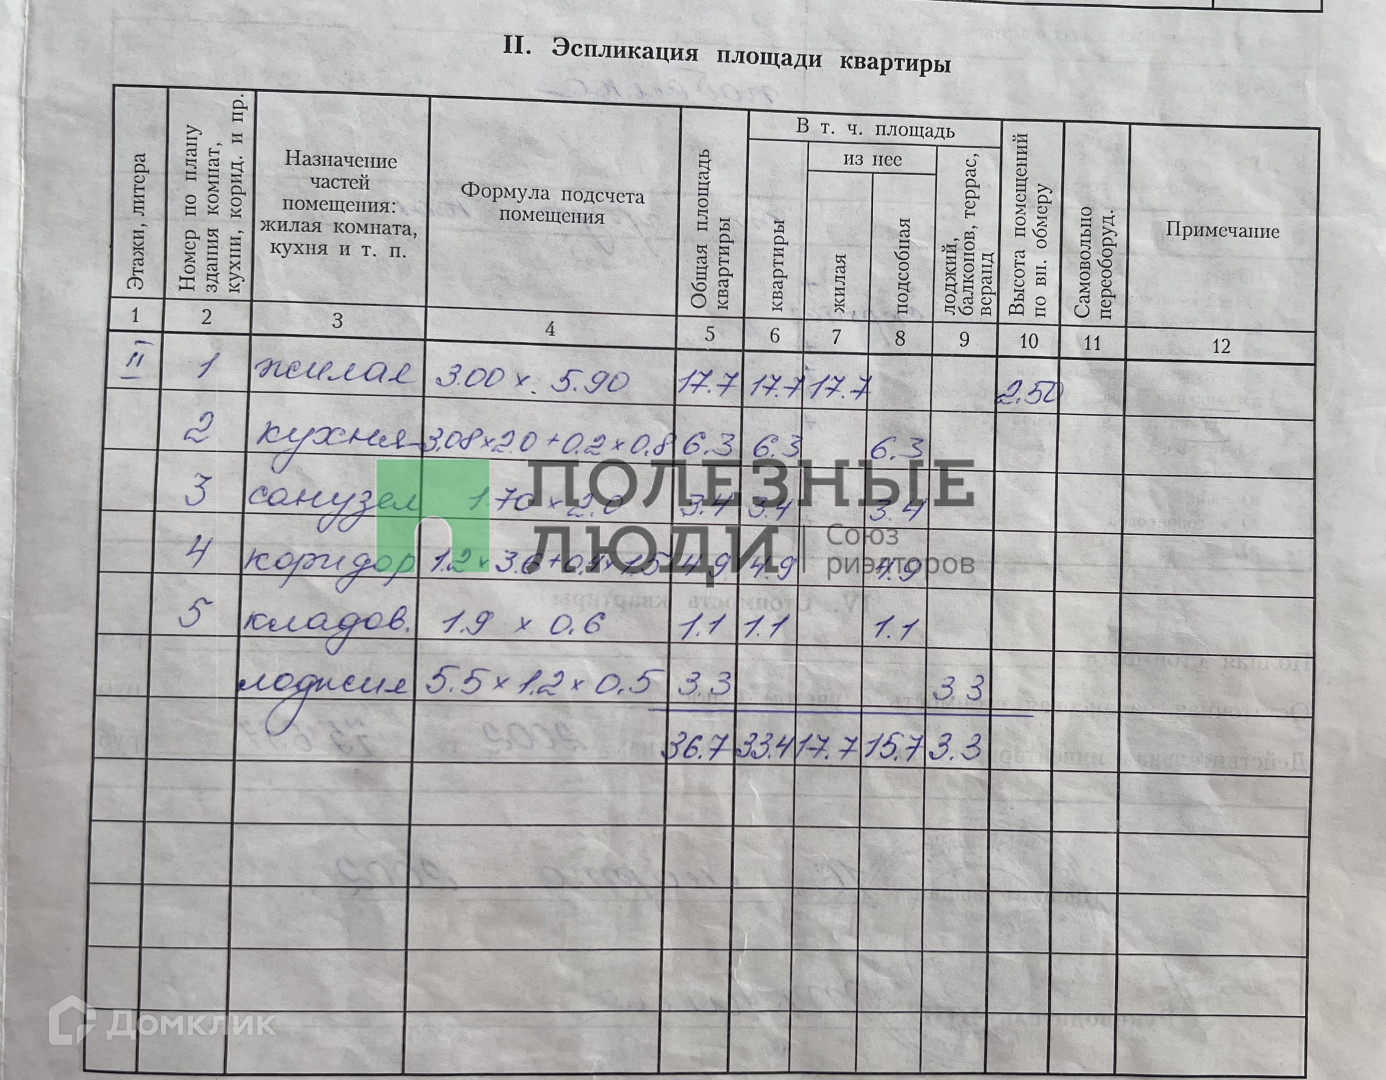 II. Эспликация площади квартиры
Этажи, литера
Номер по плану здания комнат, кухни, корид. и пр.
Назначение
частей
помещения:
жилая комната,
кухня и т. п.
Формула подсчета
помещения
Общая площадь
квартиры
В т. ч. площадь
квартиры
из нее
жилая
подсобная
лоджий,
балконов, террас,
веранд
Высота помещений
по вн. обмеру
Самовольно
переоборуд.
Примечание
1 2 3 4 5 6 7 8 9 10 11 12
II 1 жилая 3.00 х 5.90 17.7 17.7 17.7 2.50
2 кухня 3.08×2.0+0.2×0.8 6.3 6.3 6.3
3 санузел 1.70×2.0 3.4 3.4 3.4
4 коридор 1.2×3.6+0.4×1.5 4.9 4.9 4.9
5 кладов. 1.9 х 0.6 1.1 1.1 1.1
лоджия 5.5×1.2×0.5 3.3 3.3
36.7 33.4 17.7 15.7 3.3
ПОЛЕЗНЫЕ
ЛЮДИ
Союз
риэлторов
Домклик